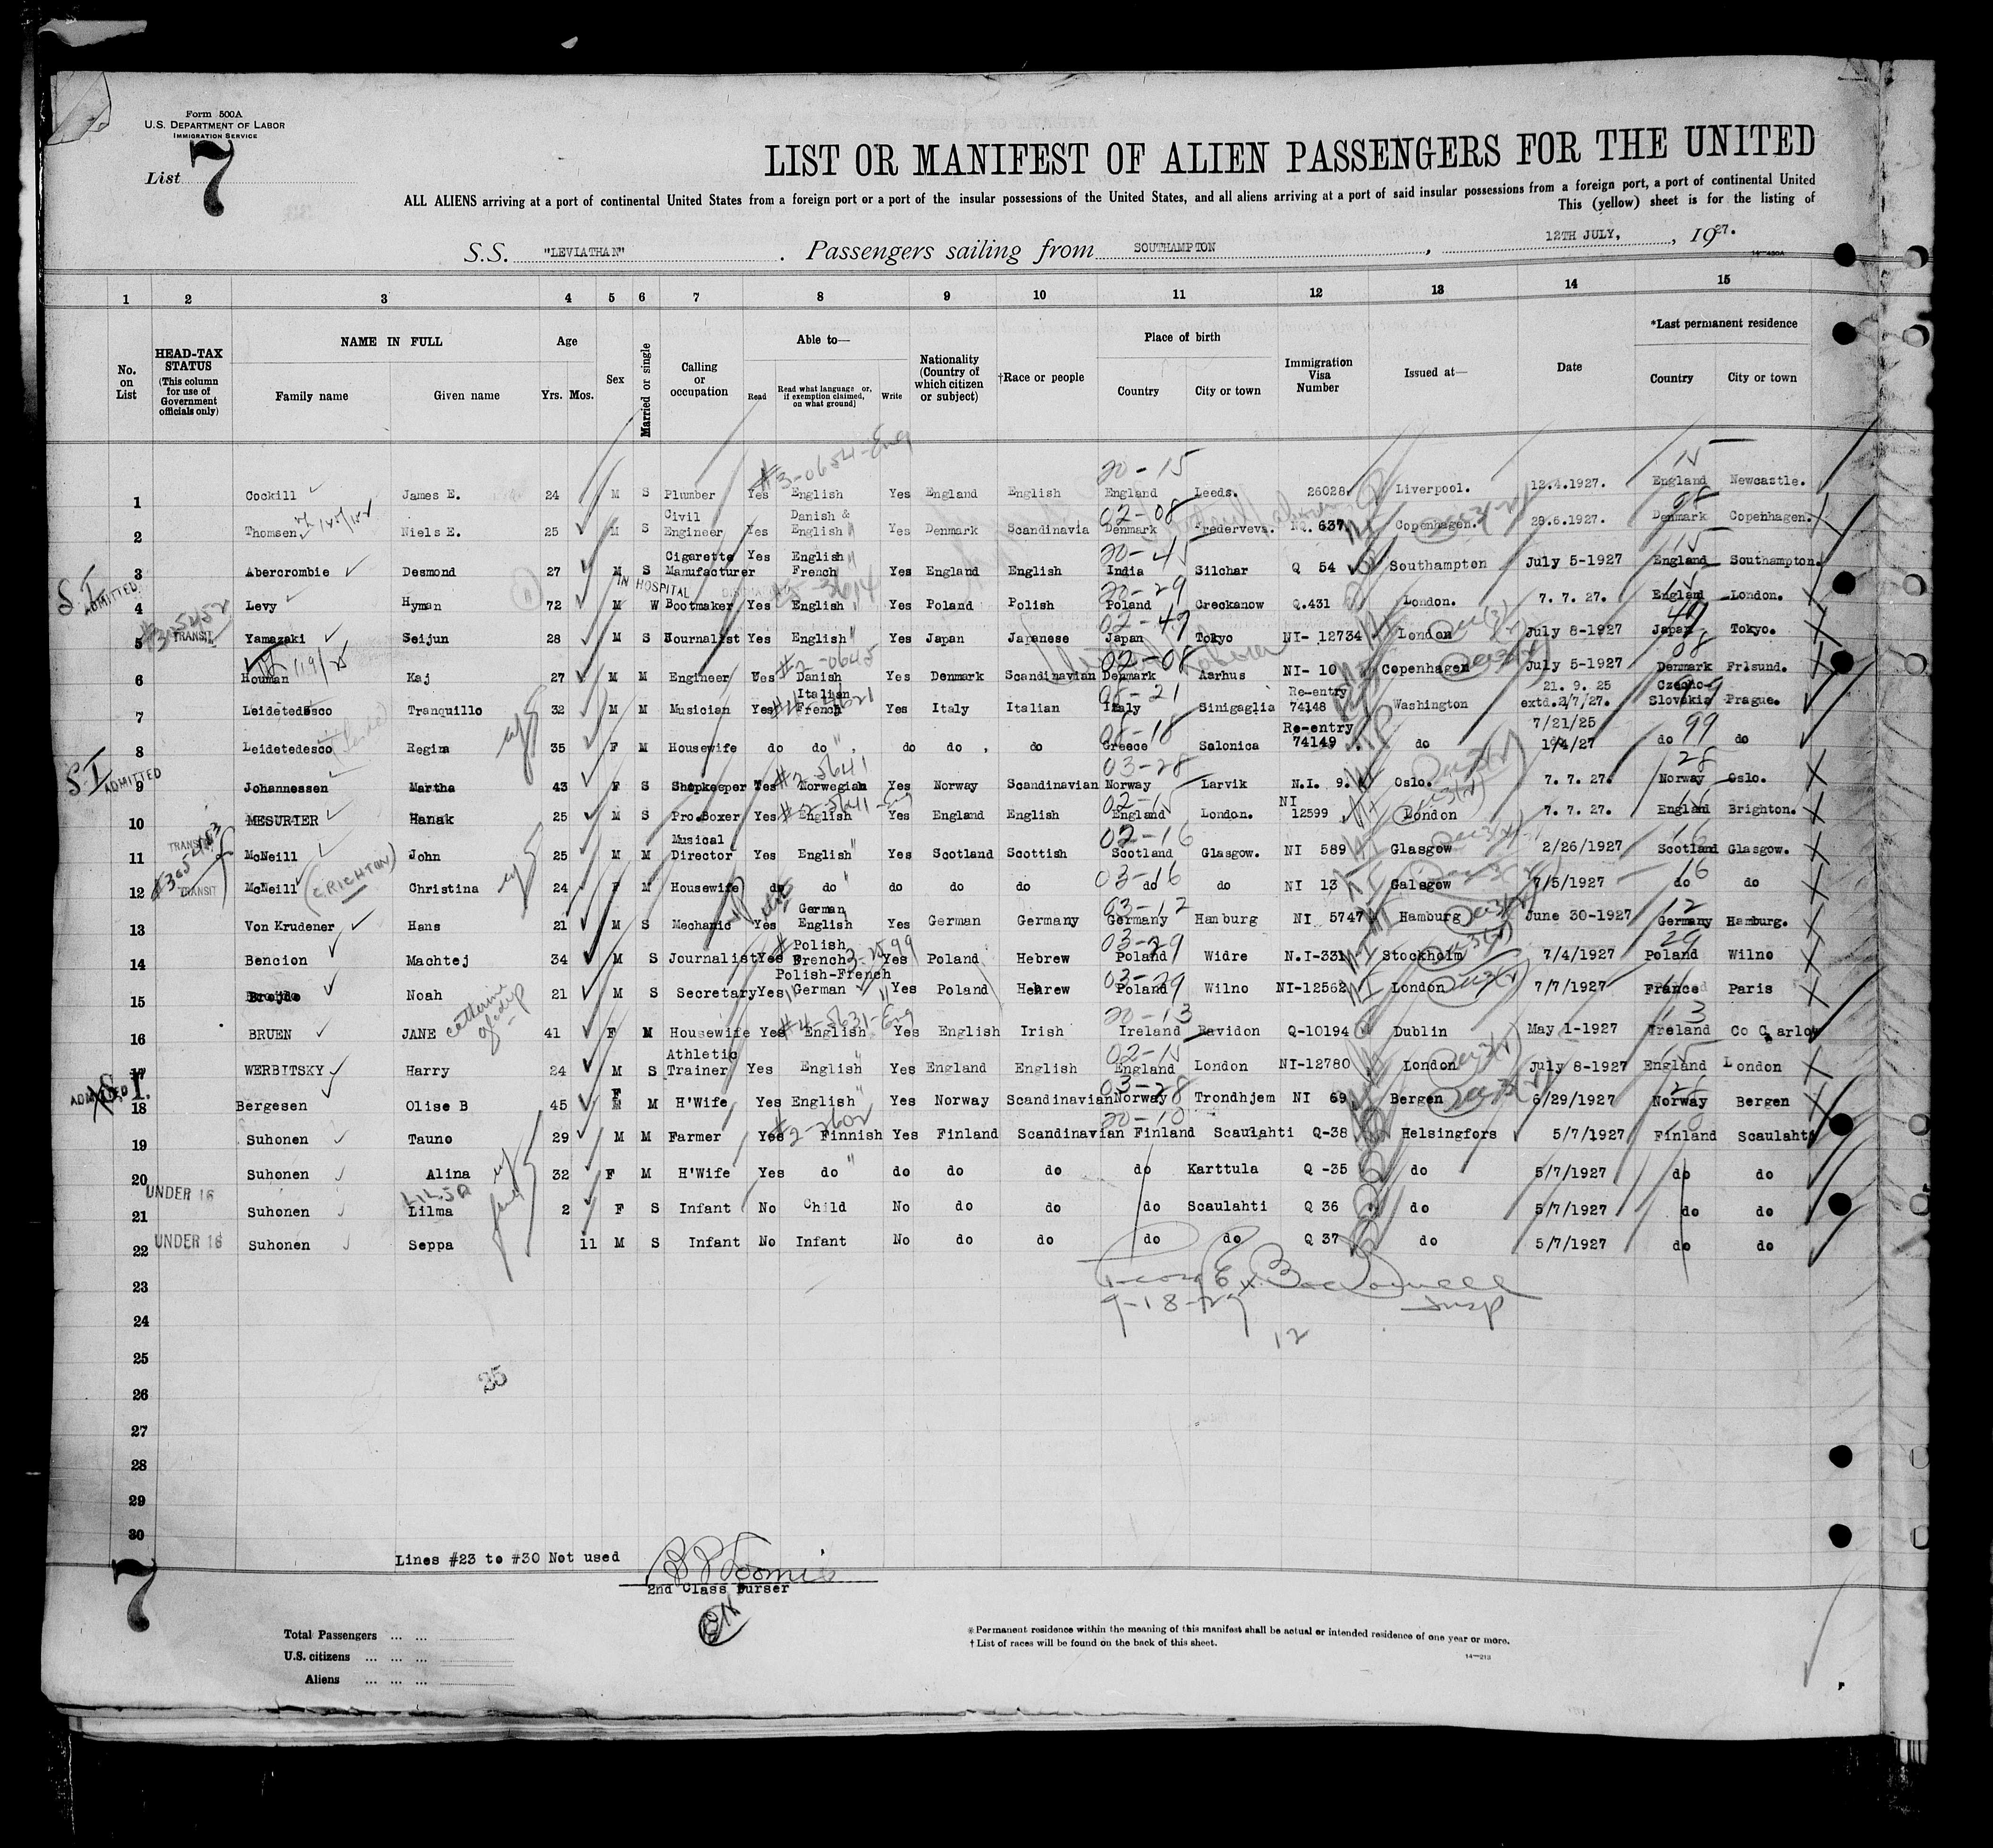 Form 500A
U.S. DEPARTMENT OF LABOR
IMMIGRATION SERVICE
List 7
LIST OR MANIFEST OF ALIEN PASSENGERS FOR THE UNITED
ALL ALIENS arriving at a port of continental United States from a foreign port or a port of the insular possessions of the United States, and all aliens arriving at a port of said insular possessions from a foreign port, a port of continental United
This (yellow) sheet is for the listing of
S.S. "LEVIATHAN" . Passengers sailing from SOUTHAMPTON , 12TH JULY, , 1927.
1 2 3 4 5 6 7 8 9 10 11 12 13 14 15
No. on List
HEAD-TAX STATUS (This column for use of Government officials only)
NAME IN FULL
Family name Given name
Age
Yrs. Mos.
Sex
Married or single
Calling or occupation
Able to—
Read Read what language or, if exemption claimed, on what ground] Write
Nationality (Country of which citizen or subject)
†Race or people
Place of birth
Country City or town
Immigration Visa Number
Issued at—
Date
*Last permanent residence
Country City or town
#3-0654-Eng 20-15 15
1 Cockill James E. 24 M S Plumber Yes English Yes England English England Leeds. 26028 Liverpool. 12.4.1927. England Newcastle.
02-08 08
2 Thomsen Niels E. 25 M S Civil Engineer Yes Danish & English Yes Denmark Scandinavia Denmark Frederveva. NI. 637 Copenhagen. 28.6.1927. Denmark Copenhagen.
20-45 15
3 Abercrombie Desmond 27 M S Cigarette Manufacturer Yes English French Yes England English India Silchar Q 54 Southampton July 5-1927 England Southampton.
S.I. ADMITTED IN HOSPITAL 20-29
4 Levy Hyman 72 M W Bootmaker Yes English Yes Poland Polish Poland Creckanow Q.431 London. 7. 7. 27. England London.
02-47 47
5 TRANSIT Yamazaki Seijun 28 M S Journalist Yes English Yes Japan Japanese Japan Tokyo NI- 12734 London July 8-1927 Japan Tokyo.
#2-0645 02-08 08
6 Houman Kaj 27 M M Engineer Yes Danish Yes Denmark Scandinavian Denmark Aarhus NI- 10 Copenhagen July 5-1927 Denmark Frlsund.
08-21
7 Leidetedesco Tranquillo 32 M M Musician Yes Italian French Yes Italy Italian Italy Sinigaglia Re-entry 74148 Washington 21. 9. 25 extd.2/7/27. Czecho-Slovakia Prague.
08-18 99
8 Leidetedesco Regina 35 F M Housewife do do do do do Greece Salonica Re-entry 74149 do 7/21/25 1/4/27 do do
S.I. ADMITTED #2-5641 03-28 28
9 Johannessen Martha 43 F S Shopkeeper Yes Norwegian Yes Norway Scandinavian Norway Larvik N.I. 9. Oslo. 7. 7. 27. Norway Oslo.
#2-5641-Eng 02-15
10 MESURIER Hanak 25 M S Pro.Boxer Yes English Yes England English England London. NI 12599 London 7. 7. 27. England Brighton.
TRANSIT 02-16 16
11 McNeill John 25 M M Musical Director Yes English Yes Scotland Scottish Scotland Glasgow. NI 589 Glasgow 2/26/1927 Scotland Glasgow.
TRANSIT (CRICHTON) 03-16 16
12 McNeill Christina 24 F M Housewife do do do do do do do NI 13 Galsgow 7/5/1927 do do
03-12 12
13 Von Krudener Hans 21 M S Mechanic Yes German English Yes German Germany Germany Hamburg NI 5747 Hamburg June 30-1927 Germany Hamburg.
03-29 29
14 Bencion Machtej 34 M S Journalist Yes Polish French Yes Poland Hebrew Poland Widre N.I-331 Stockholm 7/4/1927 Poland Wilno
03-29
15 Noah 21 M S Secretary Yes Polish-French German Yes Poland Hebrew Poland Wilno NI-12562 London 7/7/1927 France Paris
#4-5631-Eng 20-13 13
16 BRUEN JANE Catherine 41 F M Housewife Yes English Yes English Irish Ireland Ravidon Q-10194 Dublin May 1-1927 Ireland Co Carlow
02-15 15
17 WERBITSKY Harry 24 M S Athletic Trainer Yes English Yes England English England London NI-12780 London July 8-1927 England London
ADMITTED S.I. 03-28 28
18 Bergesen Olise B 45 F M H'Wife Yes English Yes Norway Scandinavian Norway Trondhjem NI 69 Bergen 6/29/1927 Norway Bergen
#2-2602 20-10
19 Suhonen Tauno 29 M M Farmer Yes Finnish Yes Finland Scandinavian Finland Scaulahti Q-38 Helsingfors 5/7/1927 Finland Scaulahti
20 Suhonen Alina 32 F M H'Wife Yes do do do do do Karttula Q -35 do 5/7/1927 do do
21 UNDER 16 Suhonen Lilma 2 F S Infant No Child No do do do Scaulahti Q 36 do 5/7/1927 do do
22 UNDER 16 Suhonen Seppa 11 M S Infant No Infant No do do do do Q 37 do 5/7/1927 do do
23
9-18-29 Insp
24
12
25
35
26
27
28
29
30
Lines #23 to #30 Not used
2nd Class Purser
OK
7
Total Passengers ... ...
U.S. citizens ... ... ...
Aliens ... ... ...
*Permanent residence within the meaning of this manifest shall be actual or intended residence of one year or more.
†List of races will be found on the back of this sheet.
14—213